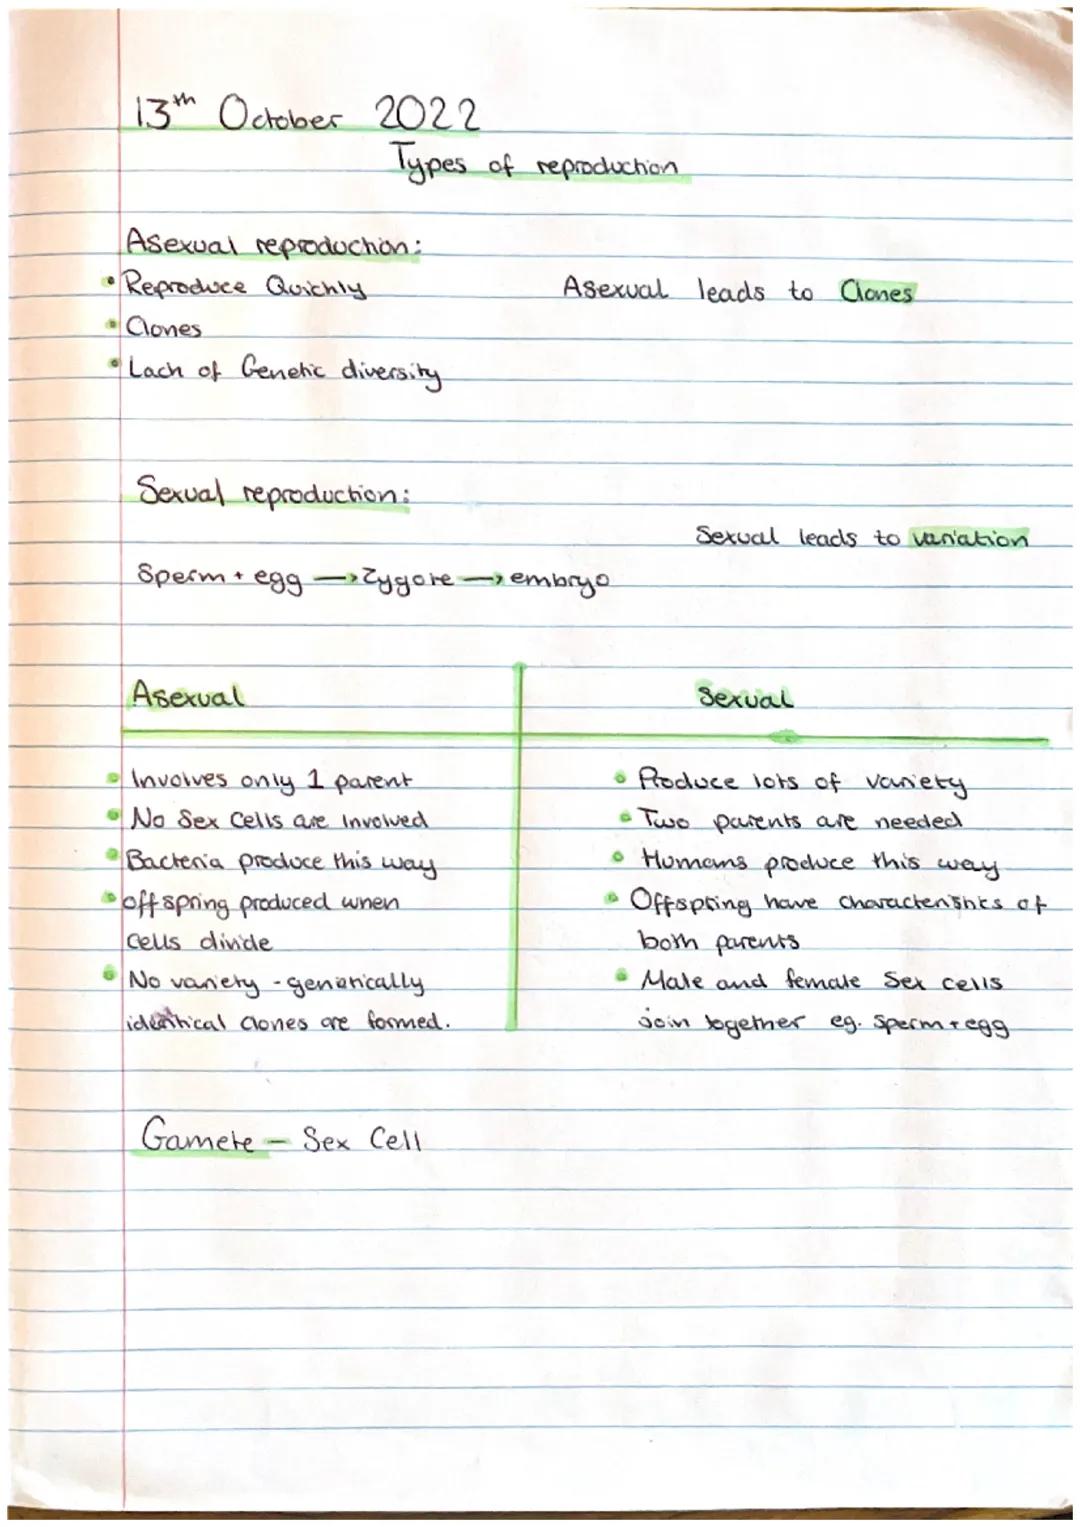 13th October 2022
Types of reproduction
Asexual reproduction:
• Reproduce Quickly
Asexual leads to Clones
• Clones
• Lack of Genetic diversity
Sexual reproduction:
Sexual leads to variation
Sperm + egg → Zygote → embryo
Asexual
Sexual
• Involves only 1 parent
• No Sex Cells are Involved
• Bacteria produce this way
• offspring produced when
cells divide
• No variety - genetically
identical Clones are formed.
• Produce lots of variety
• Two parents are needed
• Humans produce this way
• Offspring have characteristics of
both parents
• Male and female Sex cells
join together eg. Sperm + egg
Gamete - Sex Cell